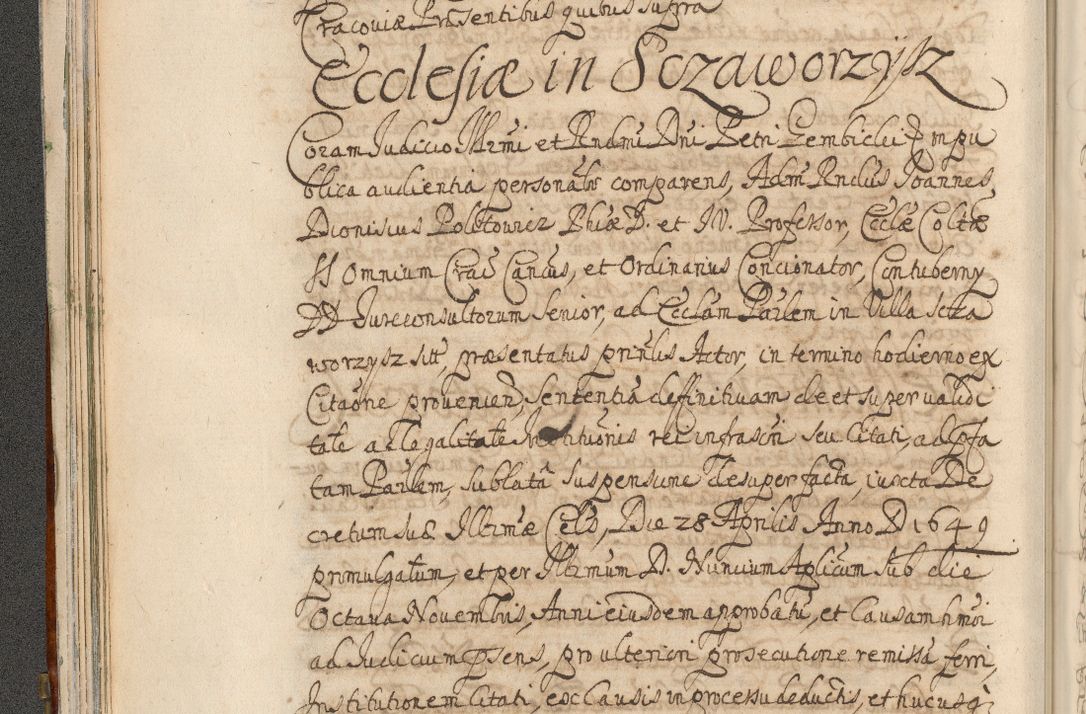 Cracoviæ Præsentibus quibus supra
Ecclesiæ in Sczaworzysz
Coram Judicio Illrmi et Rndmi Dni Petri Gembicki Epi in pu
blica audientia personalr comparens, Adm Rndus Joannes
Dionisius Poletowicz Phiæ D. et J.V. Professor, Ecclæ Coltæ
SS Omnium Crac Cancus, et Ordinarius Concionator, Contuberny
DD Jureconsultorum Senior, ad Ecclam Parlem in Villa Scza
worzysz sitt, præsentatus prinlis Actor, in termino hodierno ex
Citaone provenien, Sententia deffinitivam de et super validi
tate ac legalitate Institutionis rei infrascri seu Citati, ad pfa
tam Parlem, sublata suspensione desuper facta, iuxta De
cretum suæ Illrimæ Cels, Die 28 Aprilis Anno D 1649
promulgatum, et per Illrimum D. Nuncium Aplicum sub die
Octava Novembris, Anni eiusdem approbatu, et Causam hmoi
ad Judicium psens, pro ulteriori prosecutione remissa ferri,
Institutionem Citati, ex Clausis in processu deductis, et hucusq